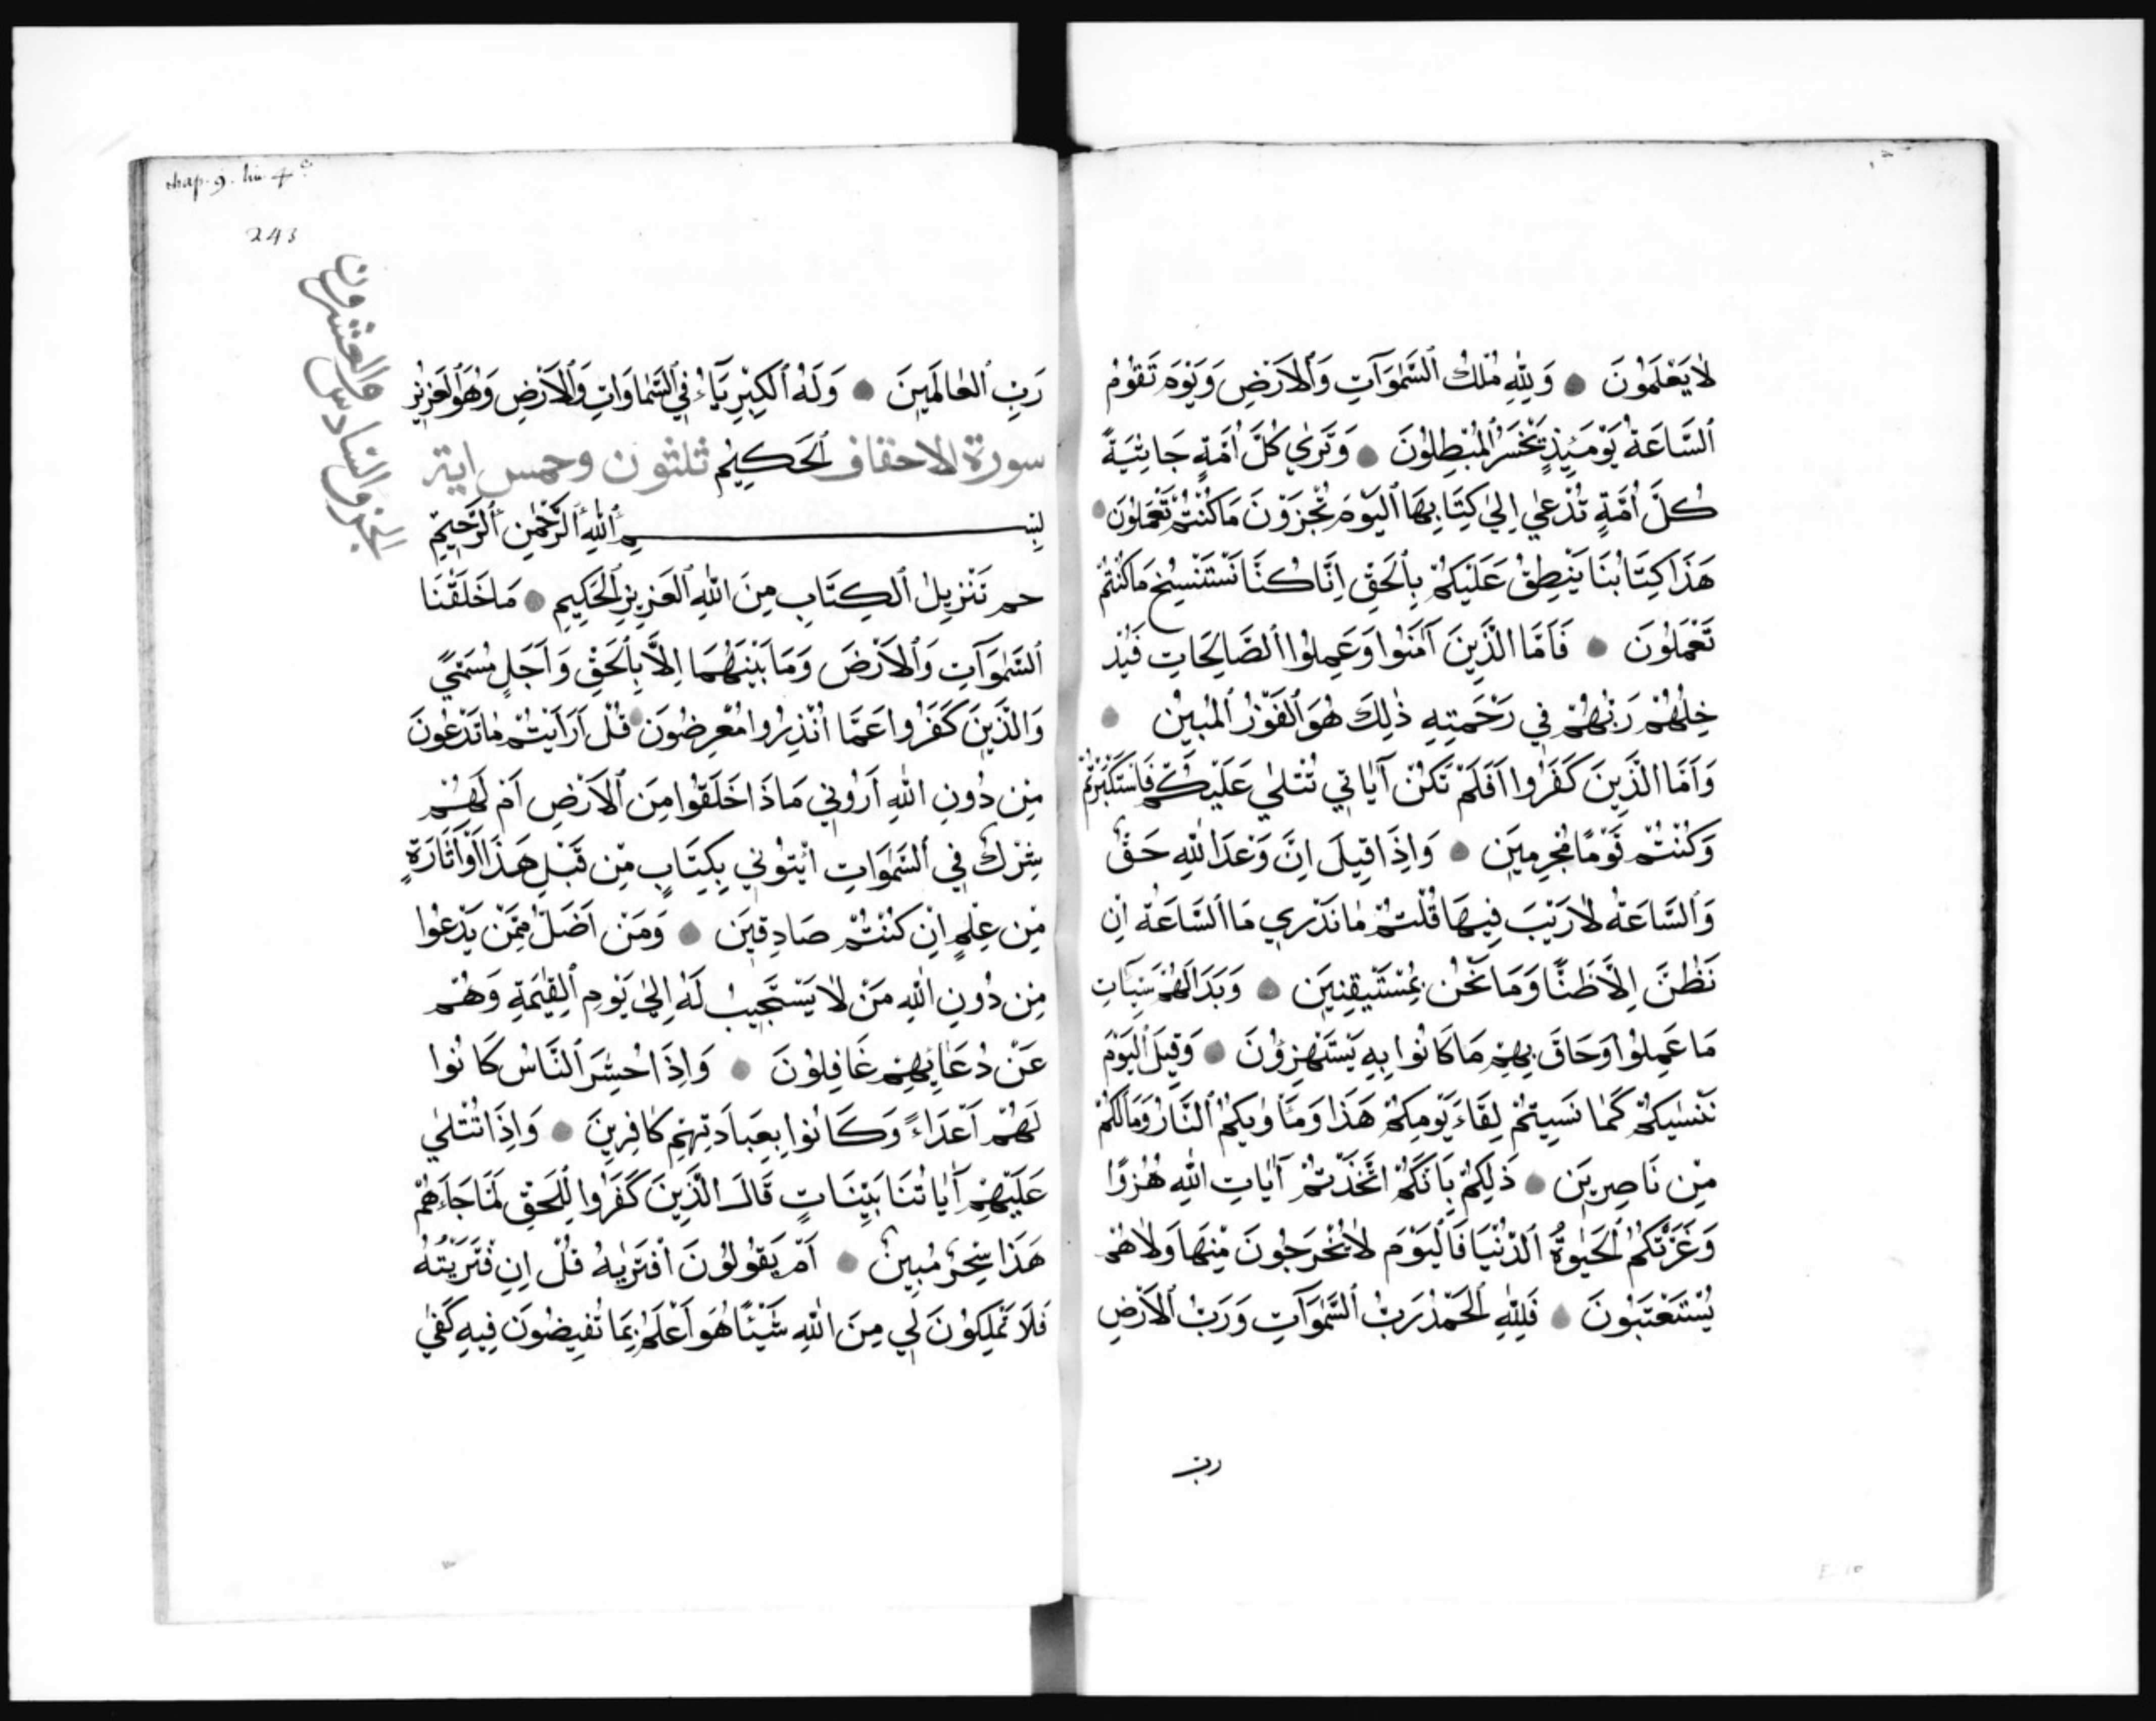 لٰا يَعْلَمُونَ ۝ وَلِلّٰهِ مُلْكُ ٱلسَّمٰوَآتِ وَٱلْاَرْضِ وَيَوْمَ تَقُومُ
ٱلسَّاعَةُ يَوْمَئِذٍ يَخْسَرُ ٱلْمُبْطِلُونَ ۝ وَتَرٰي كُلَّ اُمَّةٍ جَاثِيَةً
كُلَّ اُمَّةٍ تُدْعٰي اِلٰي كِتَابِهَا ٱلْيَوْمَ تُجْزَوْنَ مَا كُنْتُمْ تَعْمَلُونَ ۝
هَذَا كِتَابُنَا يَنْطِقُ عَلَيْكُمْ بِٱلْحَقِّ اِنَّا كُنَّا نَسْتَنْسِخُ مَا كُنْتُمْ
تَعْمَلُونَ ۝ فَاَمَّا الَّذِينَ آمَنُوا وَعَمِلُوا ٱلصَّالِحَاتِ فَيُدْ
خِلُهُمْ رَبُّهُمْ فِي رَحْمَتِهِ ذٰلِكَ هُوَ ٱلْفَوْزُ ٱلْمُبِينُ ۝
وَاَمَّا الَّذِينَ كَفَرُوا اَفَلَمْ تَكُنْ آيَاتِي تُتْلٰي عَلَيْكُمْ فَاسْتَكْبَرْتُمْ
وَكُنْتُمْ قَوْمًا مُجْرِمِينَ ۝ وَاِذَا قِيلَ اِنَّ وَعْدَ اللّٰهِ حَقٌّ
وَٱلسَّاعَةُ لٰا رَيْبَ فِيهَا قُلْتُمْ مٰا نَدْرِي مَا ٱلسَّاعَةُ اِنْ
نَظُنُّ اِلَّا ظَنًّا وَمَا نَحْنُ بِمُسْتَيْقِنِينَ ۝ وَبَدَا لَهُمْ سَيِّئَاتِ
مَا عَمِلُوا وَحَاقَ بِهِمْ مَا كَانُوا بِهِ يَسْتَهْزِؤُنَ ۝ وَقِيلَ ٱلْيَوْمَ
نَنْسٰيكُمْ كَمٰا نَسِيتُمْ لِقَاءَ يَوْمِكُمْ هَذَا وَمَأْوٰيكُمُ ٱلنَّارُ وَمَا لَكُمْ
مِنْ نَاصِرِينَ ۝ ذَلِكُمْ بِاَنَّكُمْ اتَّخَذْتُمْ آيٰاتِ اللّٰهِ هُزُوًا
وَغَرَّتْكُمُ ٱلْحَيٰوةُ ٱلدُّنْيَا فَٱلْيَوْمَ لٰا يُخْرَجُونَ مِنْهَا وَلٰا هُمْ
يُسْتَعْتَبُونَ ۝ فَلِلّٰهِ ٱلْحَمْدُ رَبِّ ٱلسَّمٰوَآتِ وَرَبِّ ٱلْاَرْضِ
رب
chap. 9. lin. 4
243
الجزو السادس والعشرون
رَبِّ ٱلْعٰالَمِينَ ۝ وَلَهُ ٱلْكِبْرِيَآءُ فِي ٱلسَّمٰاوَاتِ وَٱلْاَرْضِ وَهُوَ ٱلْعَزِيزُ
سورة الاحقاف ٱلْحَكِيمُ ثلثون وخمس اية
بِسْمِ ٱللّٰهِ ٱلرَّحْمٰنِ ٱلرَّحِيمِ
حم تَنْزِيلُ ٱلْكِتَابِ مِنَ اللّٰهِ ٱلْعَزِيزِ ٱلْحَكِيمِ ۝ مَا خَلَقْنَا
ٱلسَّمٰوَآتِ وَٱلْاَرْضَ وَمَا بَيْنَهُمَا اِلَّا بِٱلْحَقِّ وَاَجَلٍ مُسَمًّي
وَالَّذِينَ كَفَرُوا عَمَّا اُنْذِرُوا مُعْرِضُونَ ۝ قُلْ اَرَاَيْتُمْ مٰا تَدْعُونَ
مِنْ دُونِ اللّٰهِ اَرُونِي مَاذَا خَلَقُوا مِنَ ٱلْاَرْضِ اَمْ لَهُمْ
شِرْكٌ فِي ٱلسَّمٰوَاتِ ائْتُونِي بِكِتَابٍ مِنْ قَبْلِ هَذَا اَوْ اَثَارَةٍ
مِنْ عِلْمٍ اِنْ كُنْتُمْ صَادِقِينَ ۝ وَمَنْ اَضَلُّ مِمَّنْ يَدْعُوا
مِنْ دُونِ اللّٰهِ مَنْ لٰا يَسْتَجِيبُ لَهُ اِلٰي يَوْمِ ٱلْقِيٰمَةِ وَهُمْ
عَنْ دُعٰائِهِمْ غَافِلُونَ ۝ وَاِذَا حُشِرَ ٱلنَّاسُ كَانُوا
لَهُمْ اَعْدَاءً وَكَانُوا بِعِبَادَتِهِمْ كٰافِرِينَ ۝ وَاِذَا تُتْلٰي
عَلَيْهِمْ آيٰاتُنَا بَيِّنَاتٍ قَالَ الَّذِينَ كَفَرُوا لِلْحَقِّ لَمَّا جَاءَهُمْ
هَذَا سِحْرٌ مُبِينٌ ۝ اَمْ يَقُولُونَ افْتَرٰيهُ قُلْ اِنِ فْتَرَيْتُهُ
فَلَا تَمْلِكُونَ لِي مِنَ اللّٰهِ شَيْئًا هُوَ اَعْلَمُ بِمَا تُفِيضُونَ فِيهِ كَفٰي